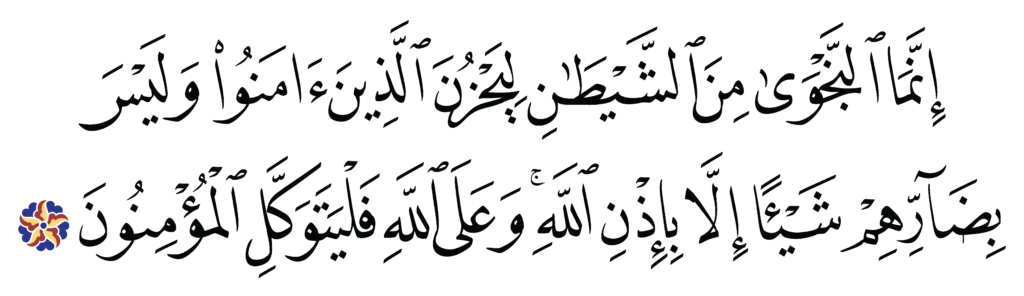 إِنَّمَا ٱلنَّجْوَىٰ مِنَ ٱلشَّيْطَٰنِ لِيَحْزُنَ ٱلَّذِينَ ءَامَنُوا۟ وَلَيْسَ
بِضَآرِّهِمْ شَيْـًٔا إِلَّا بِإِذْنِ ٱللَّهِ ۚ وَعَلَى ٱللَّهِ فَلْيَتَوَكَّلِ ٱلْمُؤْمِنُونَ